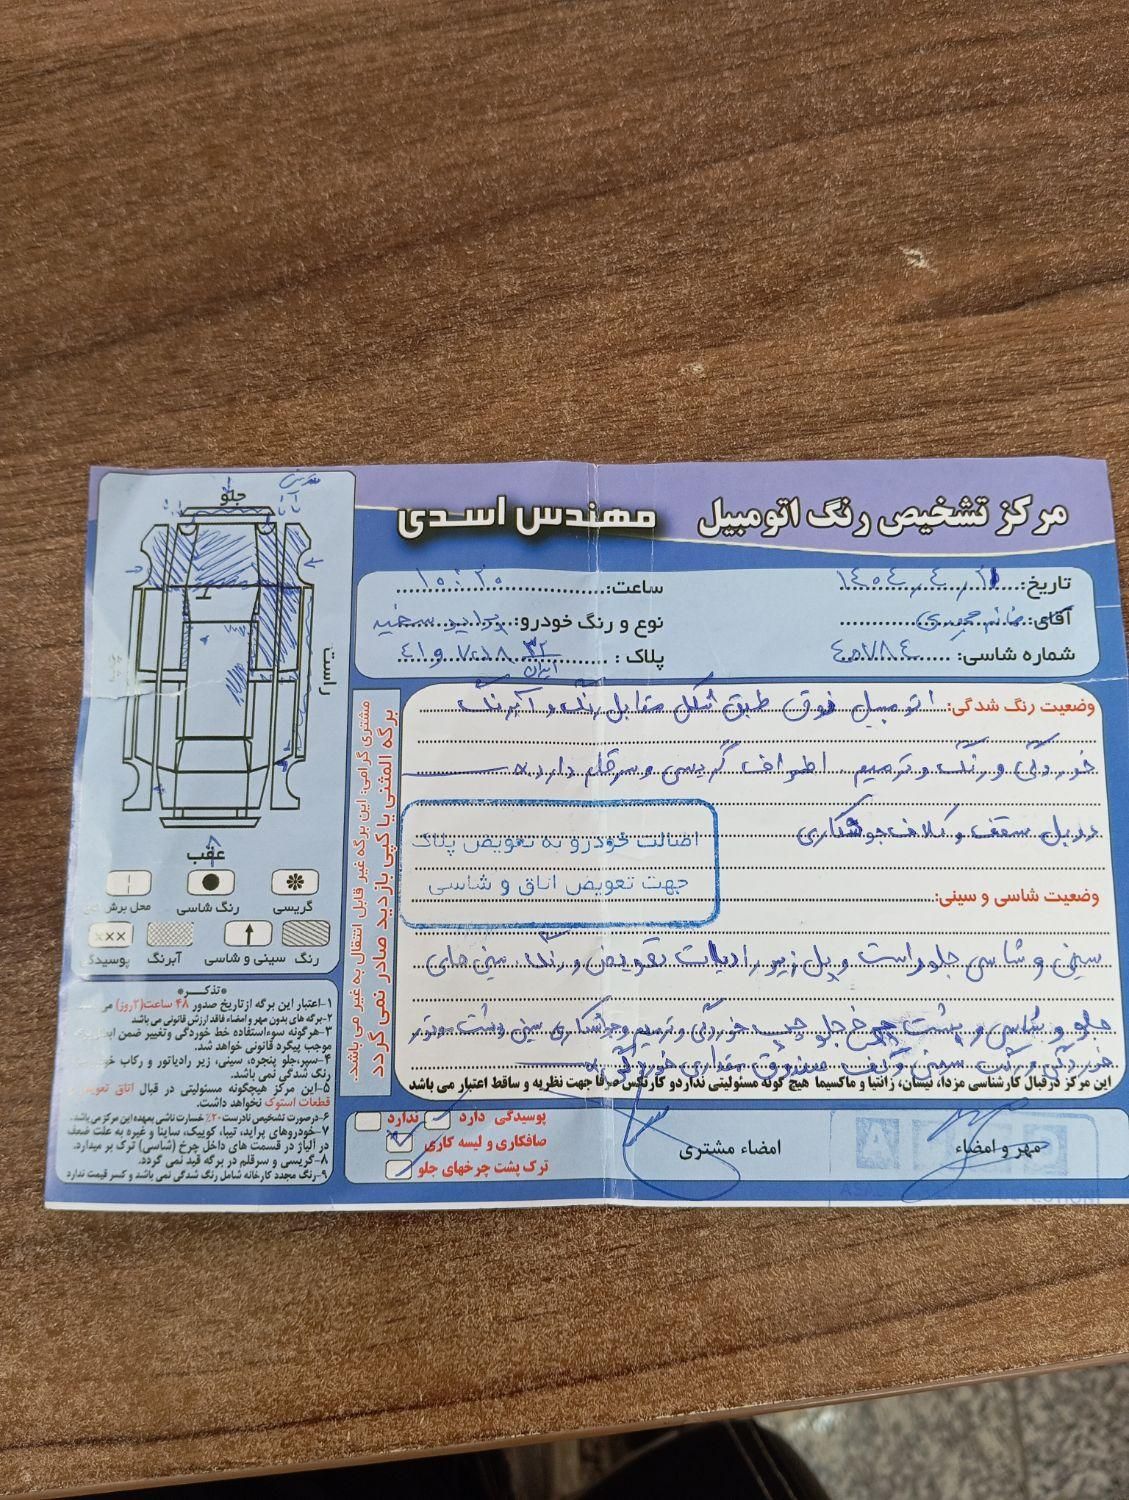 مرکز تشخیص رنگ اتومبیل مهندس اسدی
تاریخ: ۱۴۰۴،۴،۲۱ ساعت: ۱۰:۲۰
آقای: خانم نوع و رنگ خودرو: پراید سفید
شماره شاسی: پلاک: ایران ۳۲
وضعیت رنگ شدگی: اتومبیل فوق طبق شکل مقابل رنگ و آبرنگ
خوردگی و رنگ و ترمیم. اطراف گریسی و سرقلم دارد.
سقف و کلاف جوشکاری
اصالت خودرو به تعویض پلاک
جهت تعویض اتاق و شاسی
وضعیت شاسی و سینی:
سینی و شاسی جلو راست و پل زیر رادیات تعویض و رنگ. سینی های
جلو و شاسی و پشت چرخ جلو چپ خوردگی و ترمیم و جوشکاری سینی پشت موتور
خوردگی و رنگ سینی و کف صندوق مقداری خوردگی
این مرکز درقبال کارشناسی مزدا، نیسان، زانتیا و ماکسیما هیچ گونه مسئولیتی ندارد و کارتکس صرفا جهت نظریه و ساقط اعتبار می باشد
مهر و امضاء
امضاء مشتری
پوسیدگی دارد ندارد
صافکاری و لیسه کاری
ترک پشت چرخهای جلو
مشتری گرامی: این برگه غیر قابل انتقال به غیر می باشد.
برگه المثنی یا کپی بازدید صادر نمی گردد
جلو
راست
عقب
گریسی رنگ شاسی محل برش
رنگ سینی و شاسی آبرنگ پوسیدگی
xxx
*تذکر*
۱-اعتبار این برگه از تاریخ صدور ۴۸ ساعت(۲روز)
۲-برگه های بدون مهر و امضاء فاقد ارزش قانونی می باشد
۳-هرگونه سوءاستفاده خط خوردگی و تغییر ضمن
موجب پیگرد قانونی خواهد شد.
۴-سپر،جلو پنجره، سینی، زیر رادیاتور و رکاب
رنگ شدگی نمی باشد.
۵-این مرکز هیچگونه مسئولیتی در قبال اتاق
قطعات استوک نخواهد داشت.
۶-درصورت تشخیص نادرست ۲۰٪ خسارت ناشی بعهده این مرکز می باشد
۷-خودروهای پراید، تیبا، کوییک، ساینا و غیره به علت ضعف
در آلیاژ در قسمت های داخل چرخ (شاسی) ترک بر میدارد.
۸-گریسی و سرقلم در برگه قید نمی گردد.
۹-رنگ مجدد کارخانه شامل رنگ شدگی نمی باشد و کسر قیمت ندارد